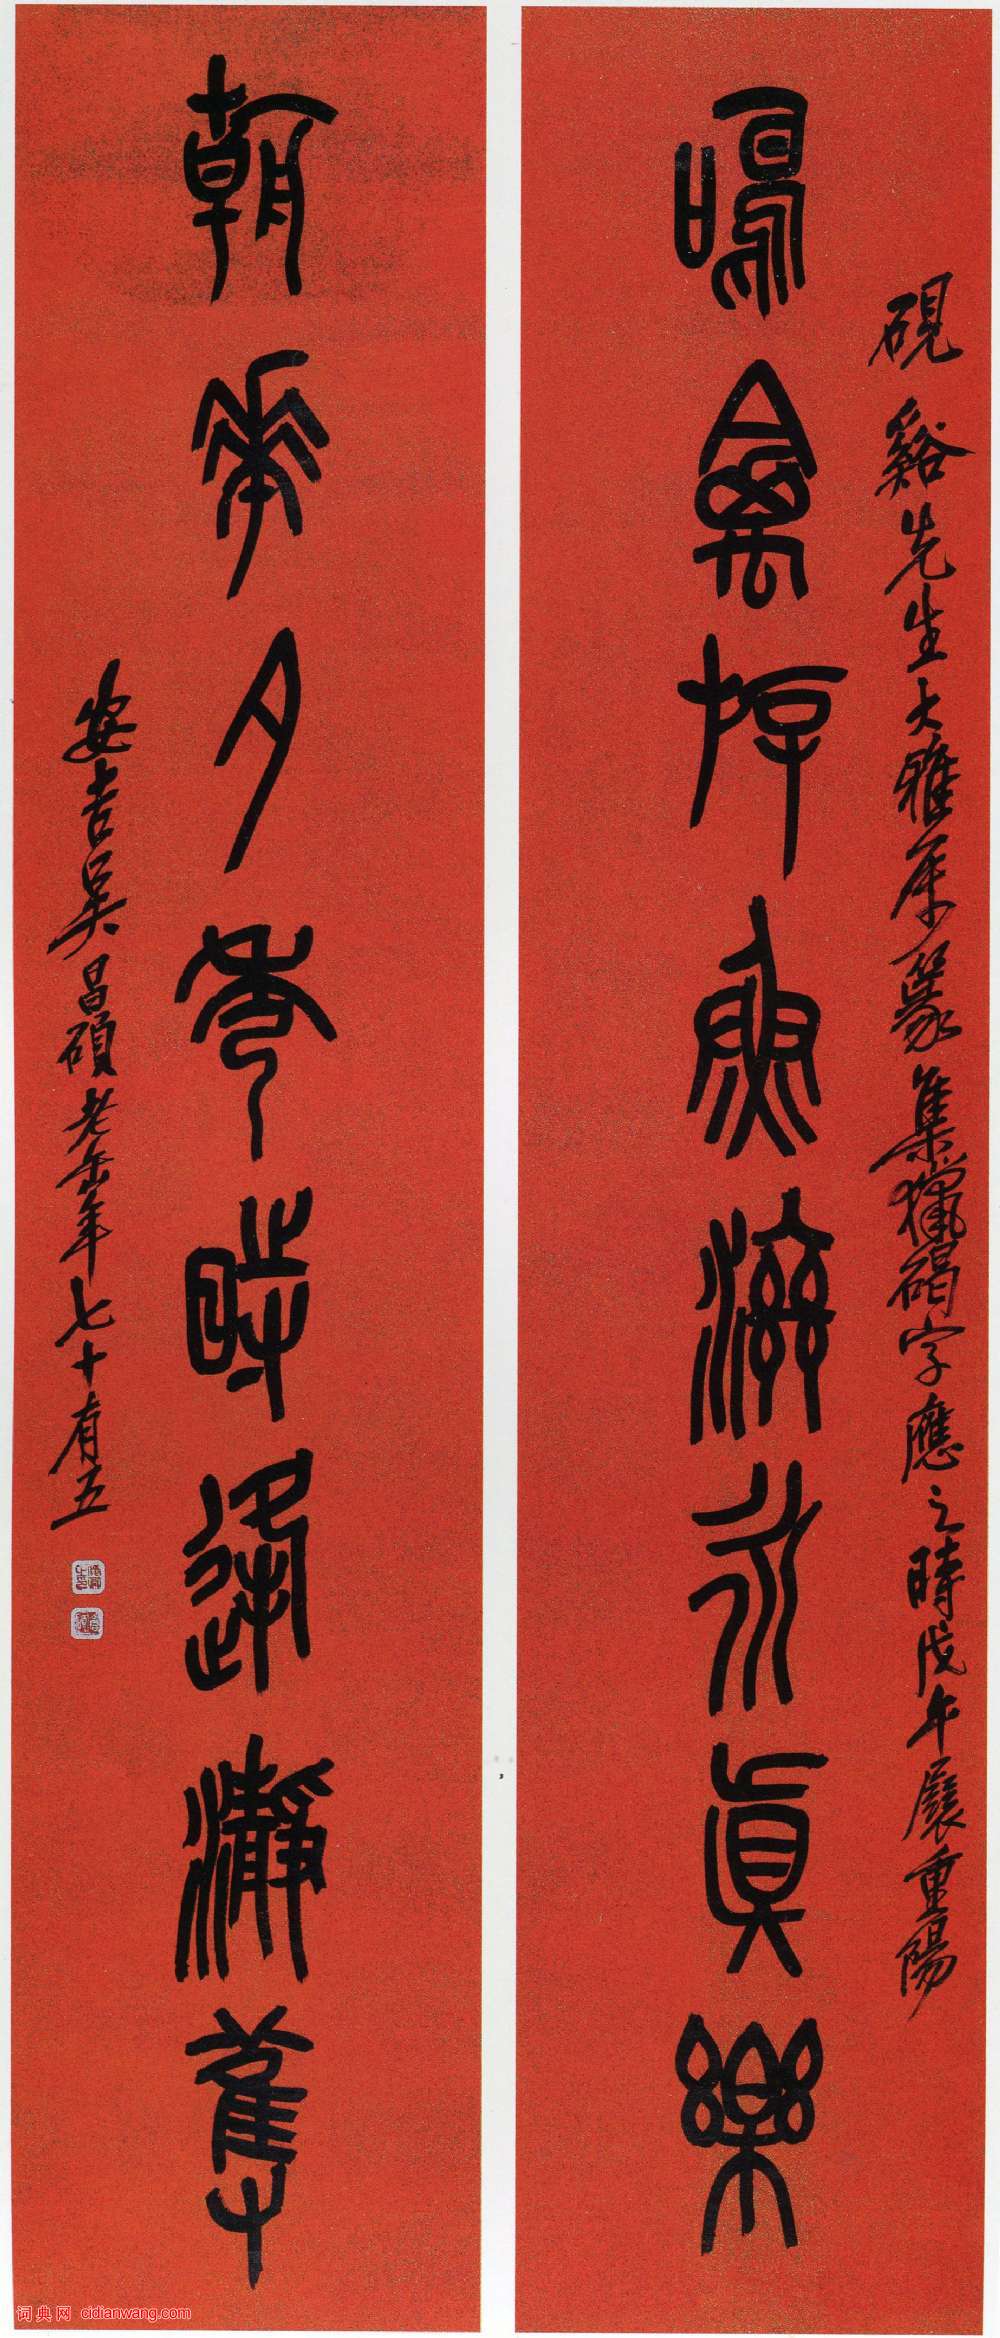 硯谿先生大雅屬篆集獵碣字應之時戊午展重陽
鳴禽斿魚滋永真樂
朝華夕秀時逢瀞奪
安吉吳昌碩老缶年七十有五
词典网 cidianwang.com